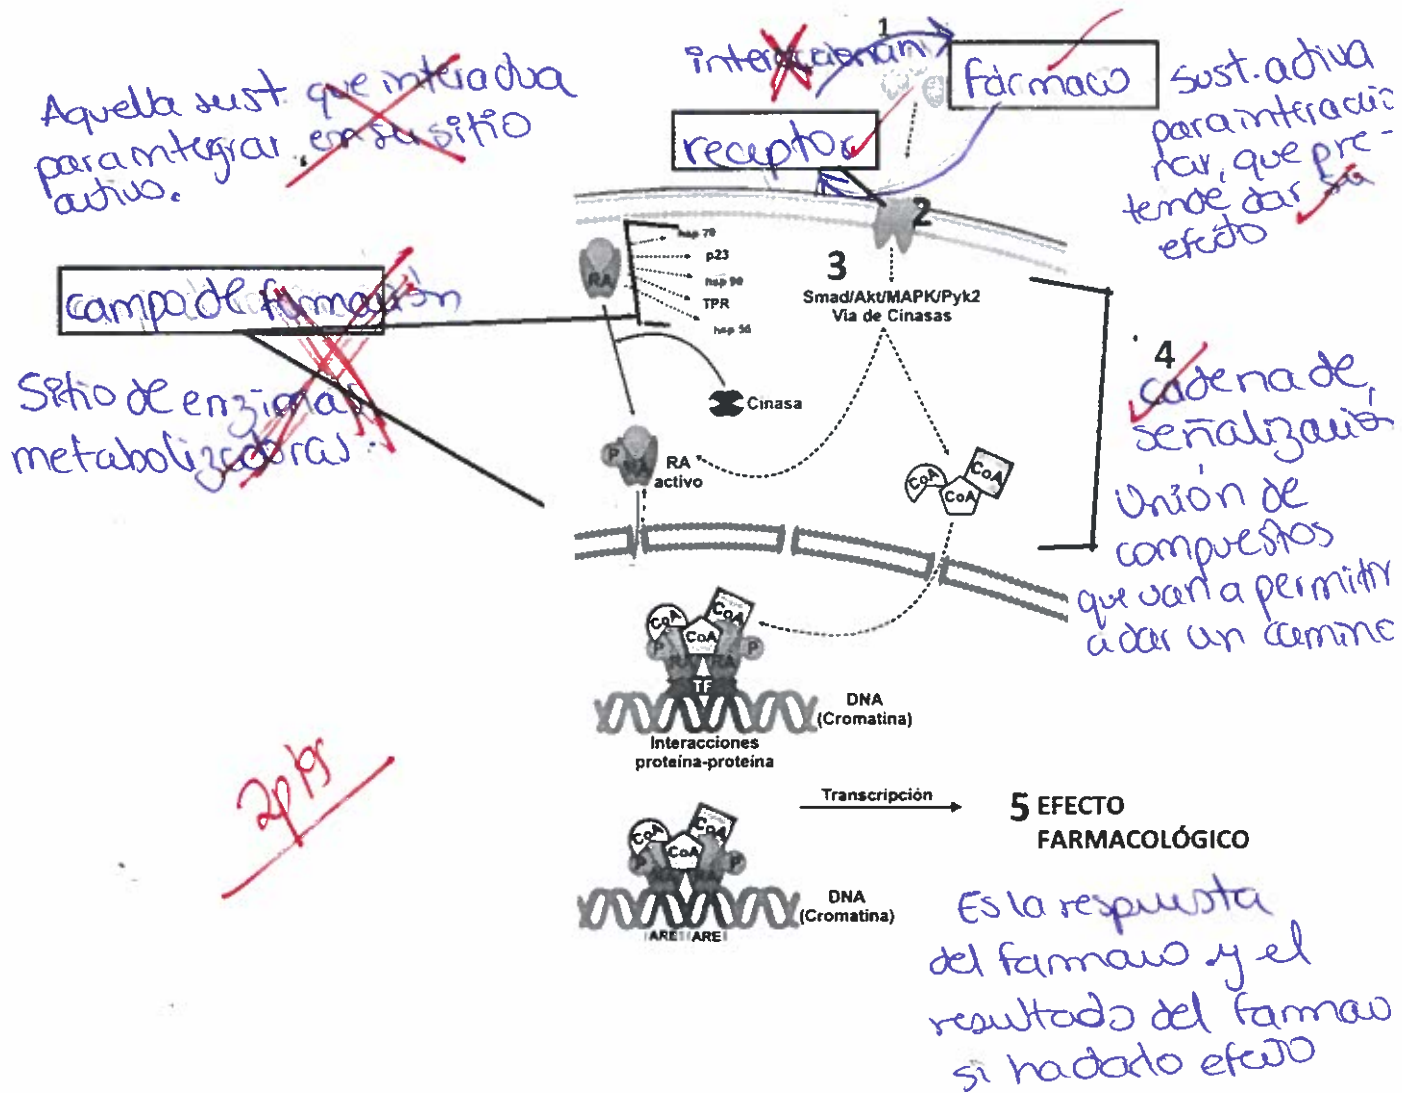 Aquella sust. que interactua
para integrar en su sitio
activo.
interaccionan
1
fármaco
receptor
sust. activa
para interaccio
nar, que pre-
tende dar su
efecto
2
campo de formación
Sitio de enzimas
metabolizadoras.
RA
hsp 70
p23
hsp 90
TPR
hsp 56
3
Smad/Akt/MAPK/Pyk2
Via de Cinasas
Cinasa
P
RA
RA
activo
CoA
CoA
CoA
4
cadena de
señalización
Unión de
compuestos
que van a permitir
a dar un camino
CoA
CoA
CoA
P
RA
RA
P
TF
DNA
(Cromatina)
Interacciones
proteína-proteína
2pts
Transcripción
5 EFECTO
FARMACOLÓGICO
CoA
CoA
CoA
P
RA
RA
P
DNA
(Cromatina)
ARE ARE
Es la respuesta
del farmaco y el
resultado del farmaco
si ha dado efecto